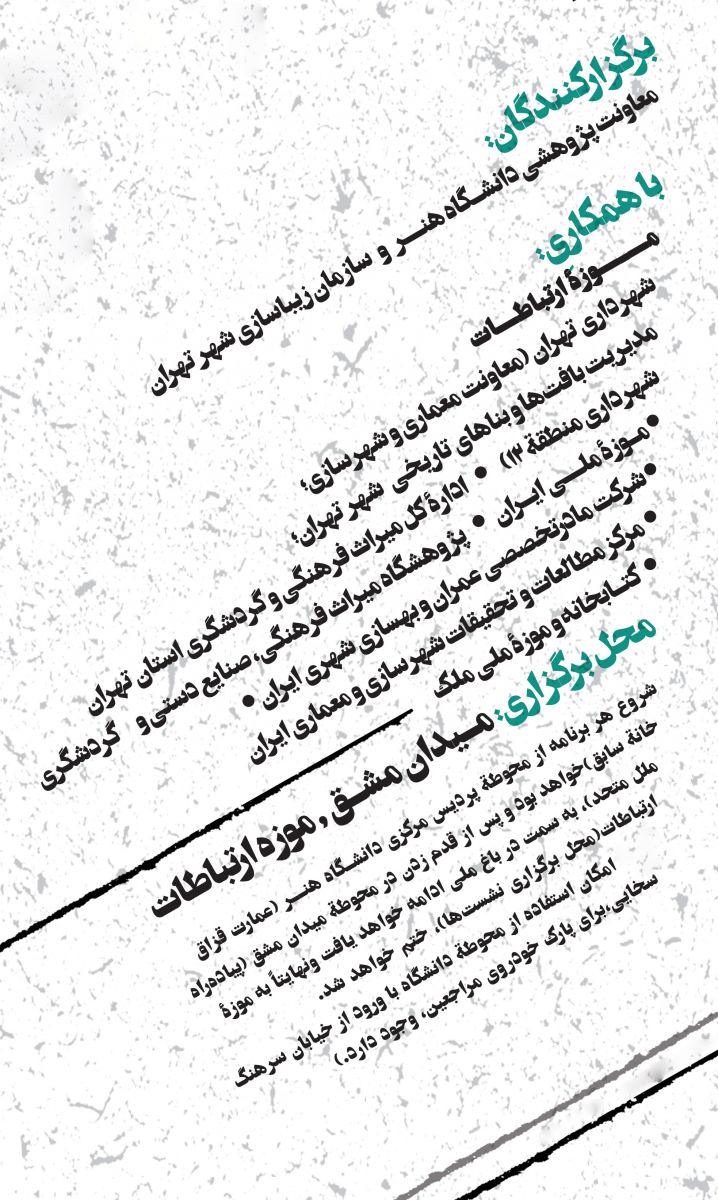 برگزارکنندگان:
معاونت پژوهشی دانشگاه هنر و سازمان زیباسازی شهر تهران
با همکاری:
موزهٔ ارتباطات
شهرداری تهران (معاونت معماری و شهرسازی؛
مدیریت بافت‌ها و بناهای تاریخی شهر تهران؛
شهرداری منطقهٔ ۱۲) • ادارهٔ کل میراث فرهنگی و گردشگری استان تهران
• موزهٔ ملی ایران • پژوهشگاه میراث فرهنگی، صنایع دستی و گردشگری
• شرکت مادرتخصصی عمران و بهسازی شهری ایران •
• مرکز مطالعات و تحقیقات شهرسازی و معماری ایران
• کتابخانه و موزهٔ ملی ملک
محل برگزاری: میدان مشق، موزه ارتباطات
شروع هر برنامه از محوطهٔ پردیس مرکزی دانشگاه هنر (عمارت قزاق
خانهٔ سابق) خواهد بود و پس از قدم زدن در محوطهٔ میدان مشق (پیاده‌راه
ملل متحد)، به سمت در باغ ملی ادامه خواهد یافت ونهایتاً به موزهٔ
ارتباطات(محل برگزاری نشست‌ها)، ختم خواهد شد.
امکان استفاده از محوطهٔ دانشگاه با ورود از خیابان سرهنگ
سخایی،برای پارک خودروی مراجعین، وجود دارد.)